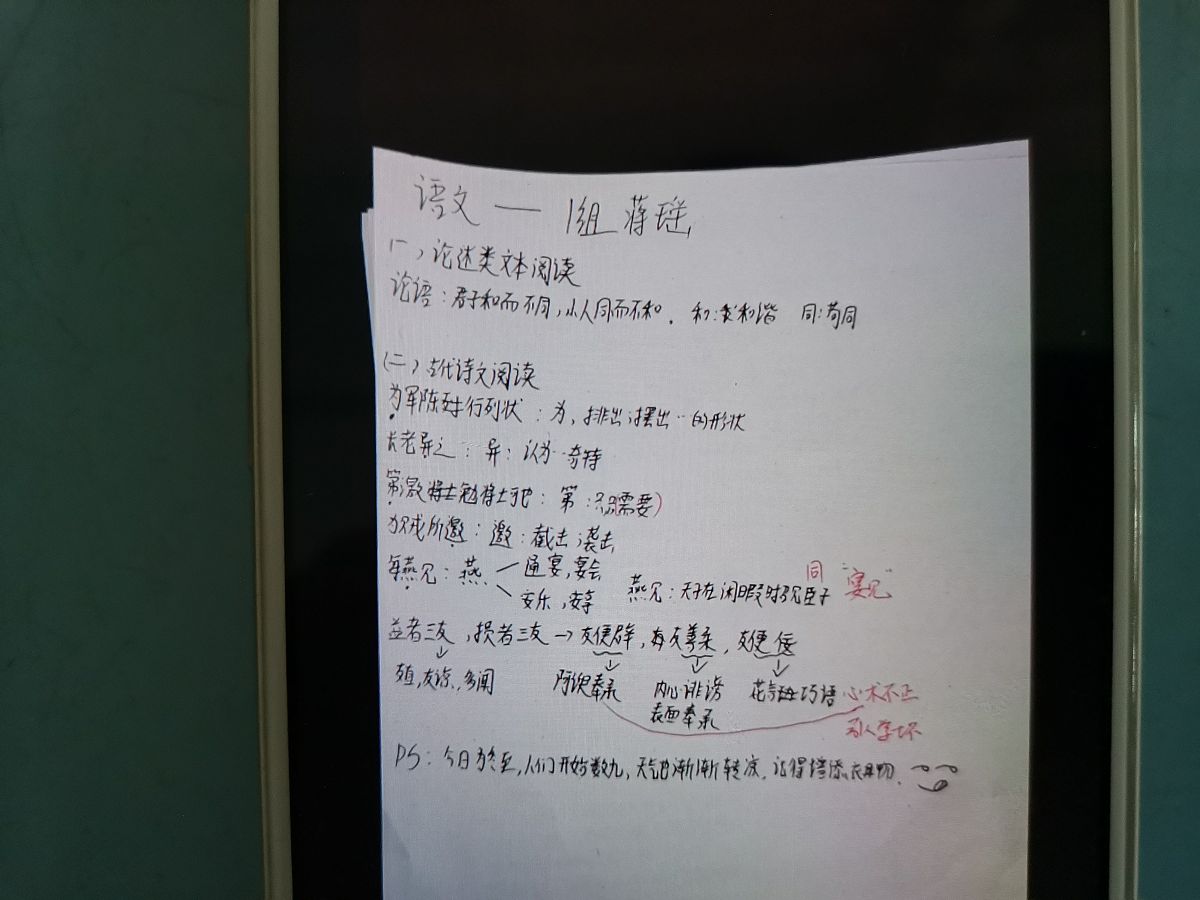 语文 — 1组 蒋瑶
(一)论述类文本阅读
论语:君子和而不同,小人同而不和. 和:求和谐 同:苟同
(二)古代诗文阅读
为军陈行列状:为,排出,摆出…的形状
长老异之:异:认为…奇特
第 将士勉将士 :第:只(只需要)
所邀:邀:截击,袭击
每燕见:燕 通宴,宴会
安乐,安享
燕见:天子在闲暇时召见臣子 同"宴见"
益者三友,损者三友→友便辟,友善柔,友便佞
友直,友谅,多闻 阿谀奉承 内心诽谤 花言巧语 心术不正
表面奉承 引人学坏
PS:今日为冬至,人们开始数九,天气也渐渐转凉,记得增添衣物.